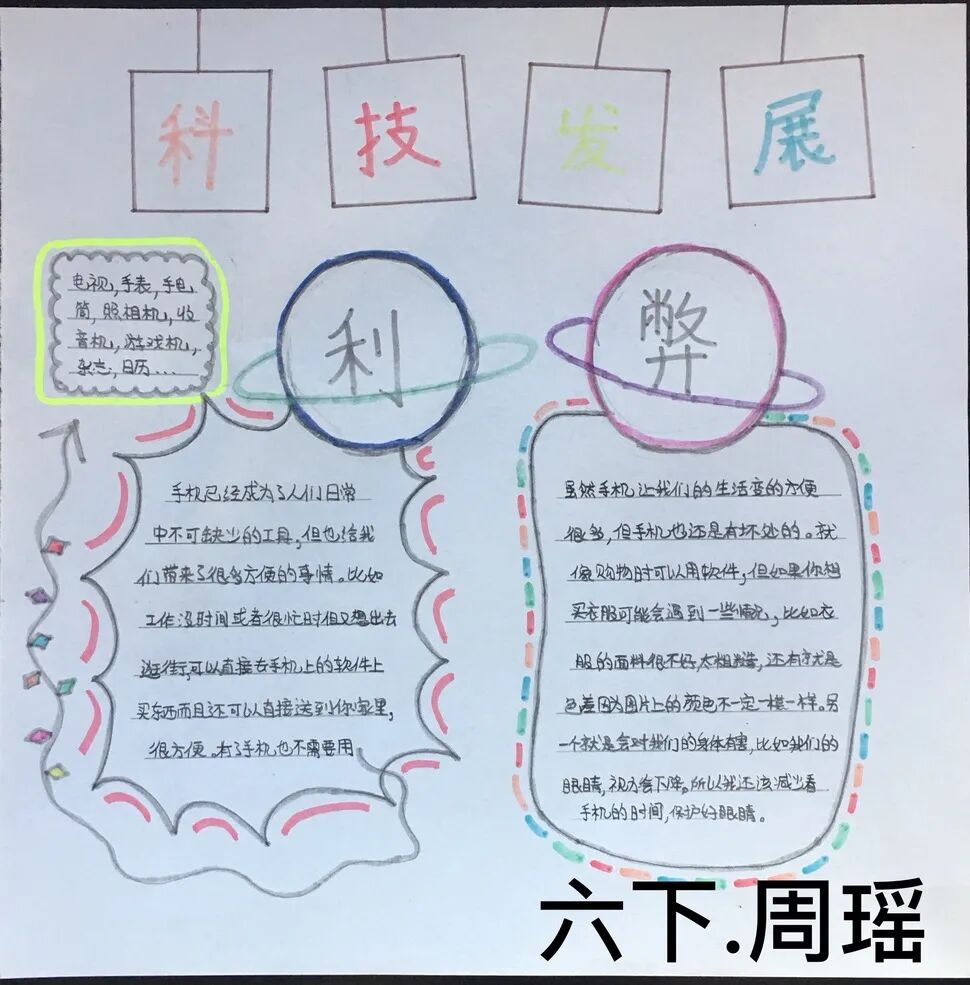 科技发展
利
弊
手机已经成为了人们日常
中不可缺少的工具,但也给我
们带来了很多方便的事情。比如
工作没时间或者很忙时但又想出去
逛街,可以直接去手机上的软件上
买东西而且还可以直接送到你家里,
很方便。有了手机也不需要用
电视,手表,手电
筒,照相机,收
音机,游戏机,
杂志,日历...
虽然手机让我们的生活变的方便
很多,但手机也还是有坏处的。就
像购物时可以用软件,但如果你想
买衣服可能会遇到一些情况,比如衣
服的面料很不好,太粗糙,还有就是
色差因为图片上的颜色不一定一模一样。另
一个就是会对我们的身体有害,比如我们的
眼睛,视力会下降。所以我还该减少看
手机的时间,保护好眼睛。
六下.周瑶